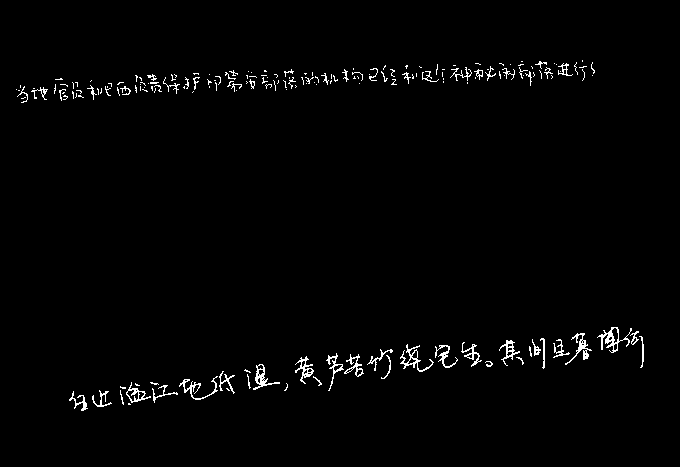 当地官员和巴西负责保护印第安部落的机构已经和这个神秘的部落进行了
住近湓江地低湿,黄芦苦竹绕宅生。其间旦暮闻何